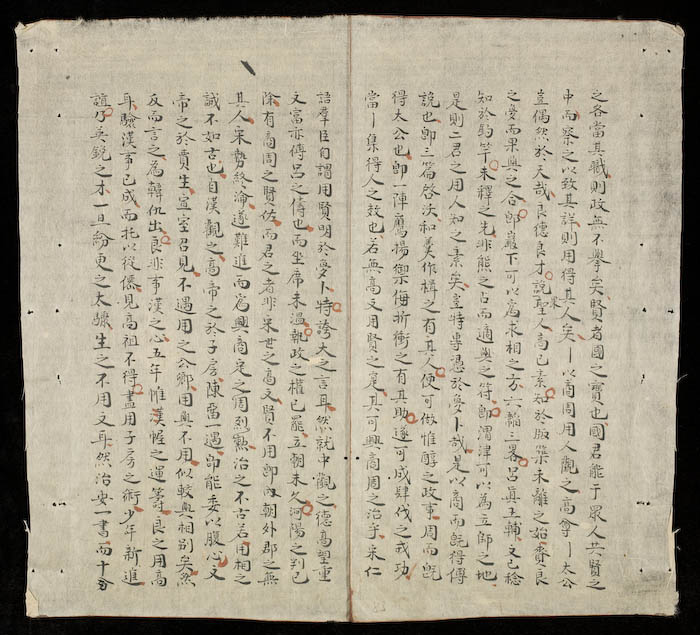 之各當其職則政無不擧矣賢者國之寶也國君能于眾人共賢之
中而察之以致其詳則用得其人矣以商周用人觀之高會太公
豈偶然於天哉良德良才說聖人高已素知於版築未離之始賚良
之夢而果與之合即巖下可以為求相之方六韜三畧呂真王輔文已稔
知於釣竿未釋之先非熊之占而適與之符即渭津可以為立師之地
是則二君之用人知之素矣豈特專憑於夢卜哉是以商而旣得傅
說也即三篇啓沃和羹作楫之有其人便可做惟醇之政事周而旣
得太公也即一陣鷹揚禦侮折衝之有其助遂可成肆伐之戎功
當集得人之效也若無高文用賢之寔其可興商周之治乎宋仁
語羣臣自謂用賢明於夢卜特誇大之言耳然就中觀之德高望重
文富亦傅呂之儔也而坐席未溫執政之權已罷立朝未久河陽之判已
除有商周之賢佐而君之者非宋世之高文賢不用即內朝外郡之無
其人宋勢終淪遂難進而為興商定之周烈勲治之不古若用相之
誠不如古也自漢觀之高帝之於子房陳畱一遇即能委以腹心文
帝之於賈生宣室召見不過用之公卿用與不用似較與相別矣然
反而言之為韓仇出良非事漢之心五年惟漢幄之運籌良之用高
耳驗漢事已成而托以從僊見高祖不得盡用子房之術少年新進
誼乃英銳之才一旦紛更之太驟生之不用文耳然治安一書而十分